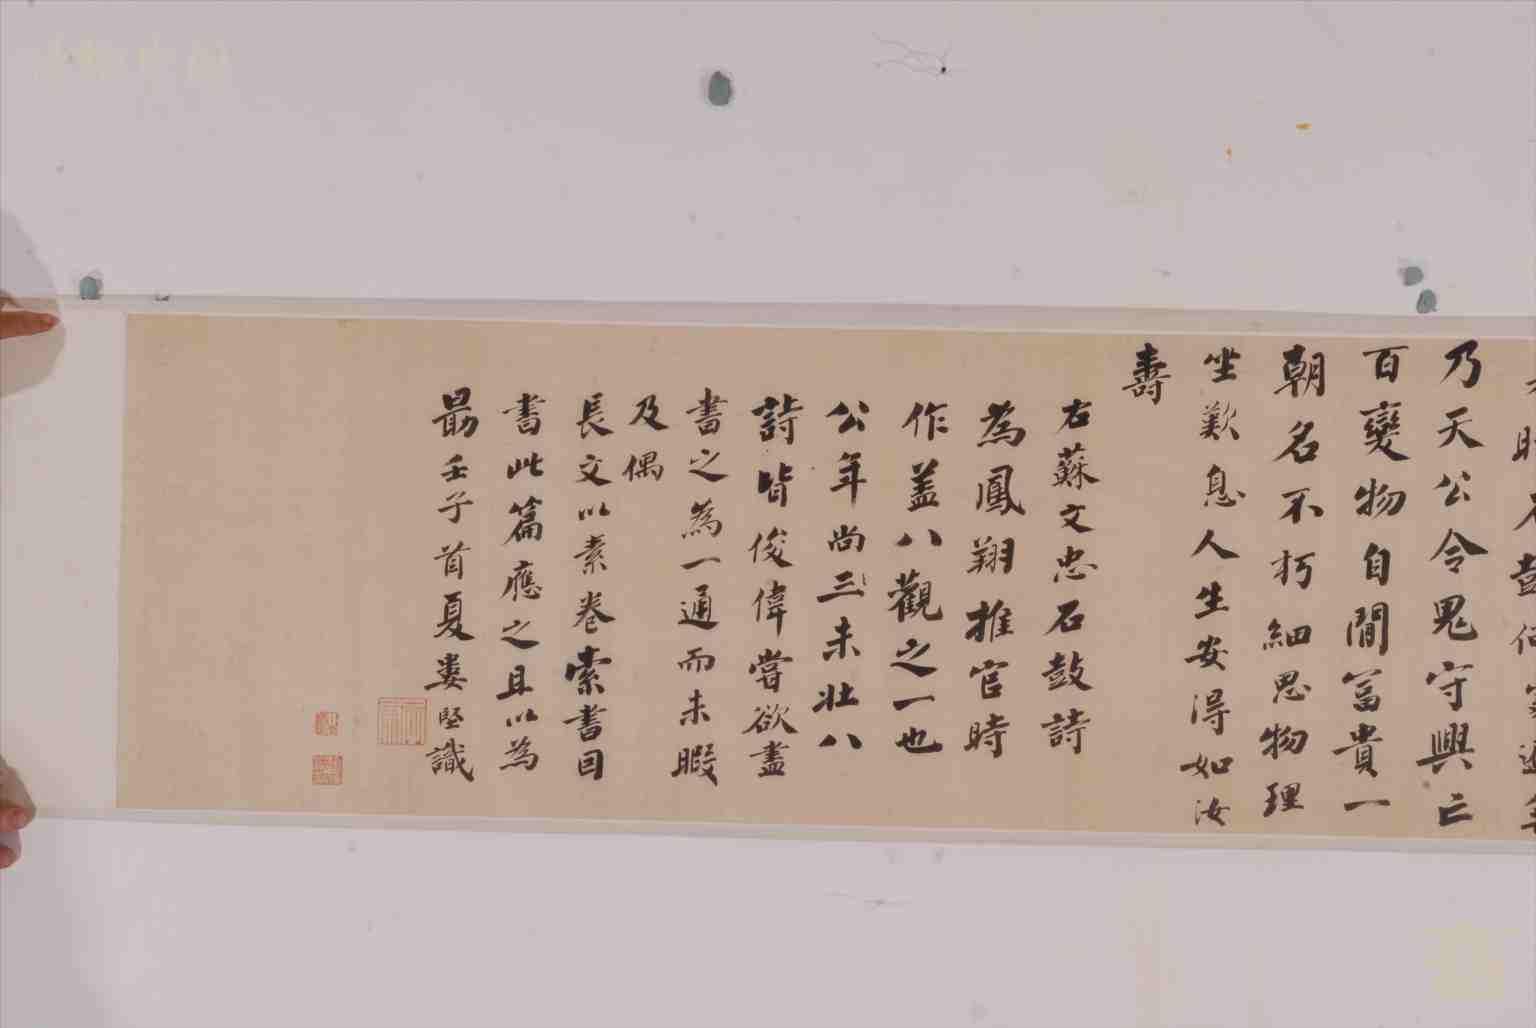 乃天公令鬼守興亡
百變物自閒富貴一
朝名不朽細思物理
坐歎息人生安得如汝
壽
右蘇文忠石鼓詩
為鳳翔推官時
作蓋八觀之一也
公年尚三未壯八
詩皆俊偉嘗欲盡
書之為一通而未暇
及偶
長文以素卷索書因
書此篇應之且以為
最壬子首夏婁堅識